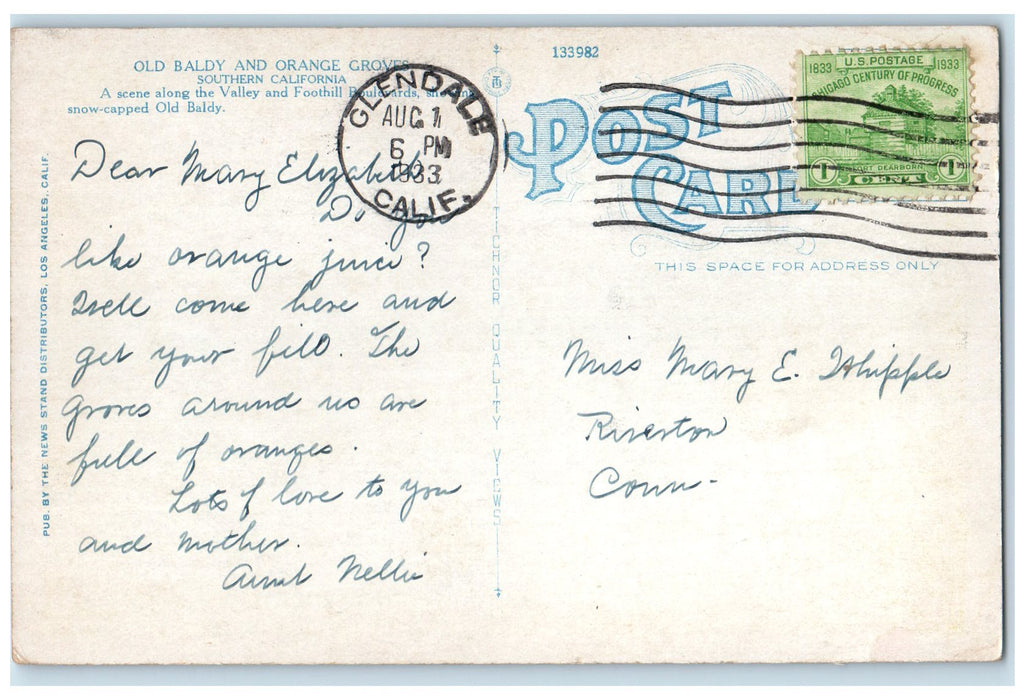 OLD BALDY AND ORANGE GROVES
SOUTHERN CALIFORNIA
A scene along the Valley and Foothill Boulevards, showing
snow-capped Old Baldy.
Dear Mary Elizabeth
Do you
like orange juice?
Well come here and
get your fill. The
groves around us are
full of oranges.
Lots of love to you
and mother.
Aunt Nellie
PUB. BY THE NEWS STAND DISTRIBUTORS, LOS ANGELES, CALIF.
GLENDALE
AUG 1
6 PM
1933
CALIF.
TICHNOR QUALITY VIEWS
133982
POST
CARD
THIS SPACE FOR ADDRESS ONLY
U.S. POSTAGE
1833 1933
CHICAGO CENTURY OF PROGRESS
FORT DEARBORN
1 CENT 1
Miss Mary E. Whipple
Riverton
Conn.